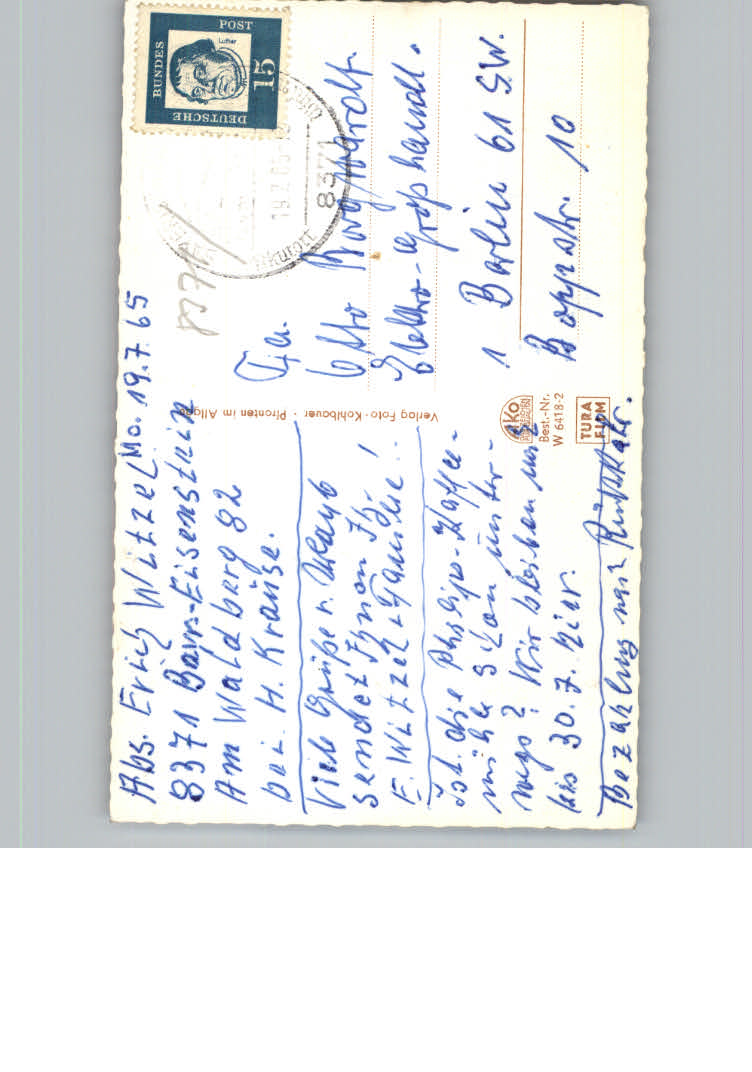 Abs. Erich Witzel Mo. 19.7.65
8371 Bayr.-Eisenstein
Am Waldberg 82
bei H. Krause.
Viele Grüße v. Urlaub
sendet Ihnen Ihr
E. Witzel u. Familie!
Ist die Philips-Kaffee-
mühle schon unter-
wegs? Wir bleiben nur
bis 30.7. hier.
Bezahlung nach Rückkehr.
DEUTSCHE
BUNDES
POST
15
Luther
8371
19.7.65
Luftkurort
8371
Fa.
Otto Borgwardt
Elektro-Großhandl.
1 Berlin 61 SW.
Boppstr. 10
Verlag Foto-Kohlbauer · Pfronten im Allgäu
AKO
Best.-Nr.
W 6418-2
TURA
FILM